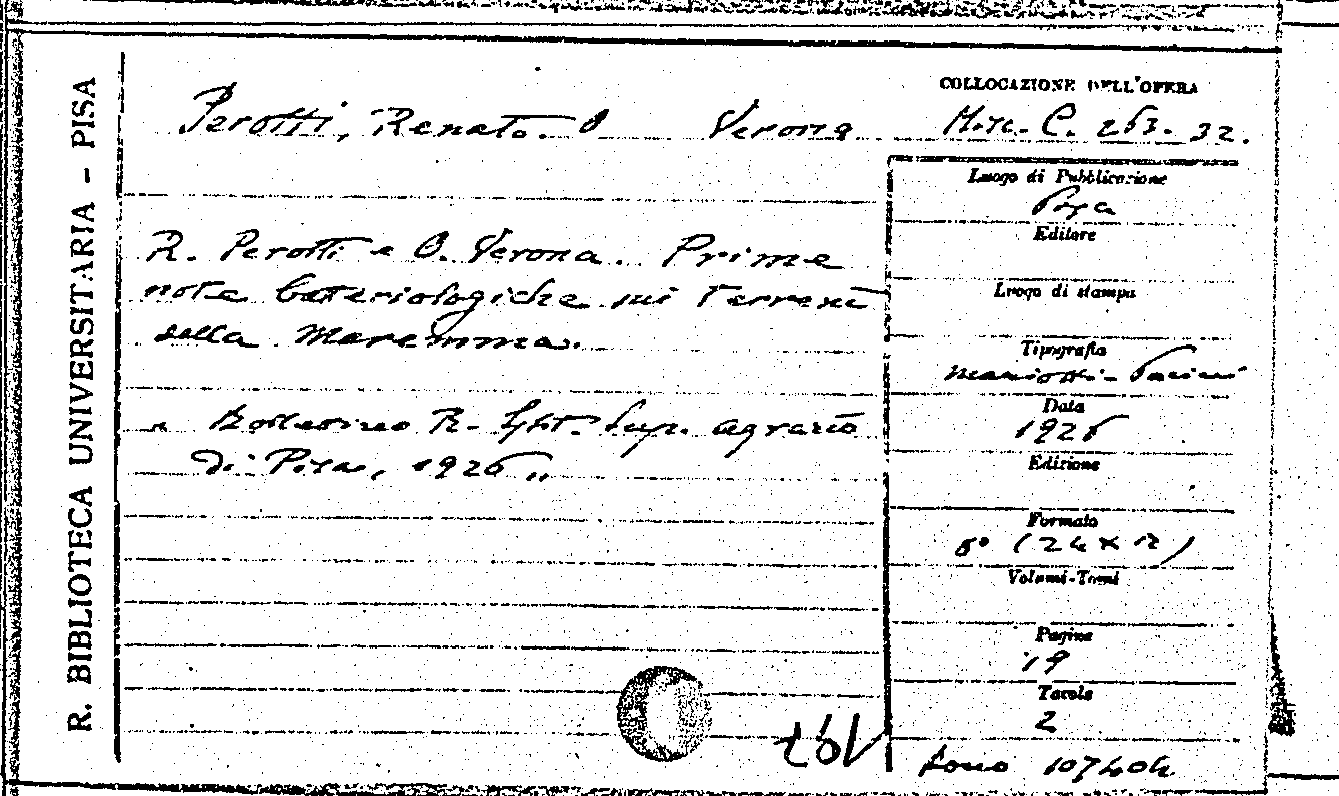 R. BIBLIOTECA UNIVERSITARIA – PISA
COLLOCAZIONE DELL'OPERA
Perotti, Renato. O Verona
Misc. C. 263. 32.
R. Perotti e O. Verona. Prime
note batteriologiche sui terreni
della Maremma.
" Bollettino R. Ist. Sup. agrario
di Pisa, 1926 "
Luogo di Pubblicazione
Pisa
Editore
Luogo di stampa
Tipografia
Mariotti-Pacini
Data
1926
Edizione
Formato
8° (24 x
Volumi-Tomi
Pagine
19
Tavole
2
Dono 107404